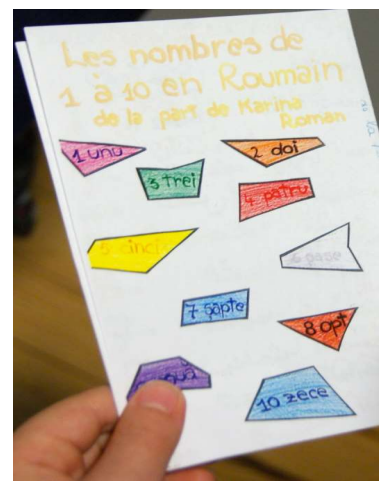 Les nombres de
1 à 10 en Roumain
de la part de Karina
Roman
1 unu
2 doi
3 trei
4 patru
5 cinci
7 șapte
8 opt
10 zece